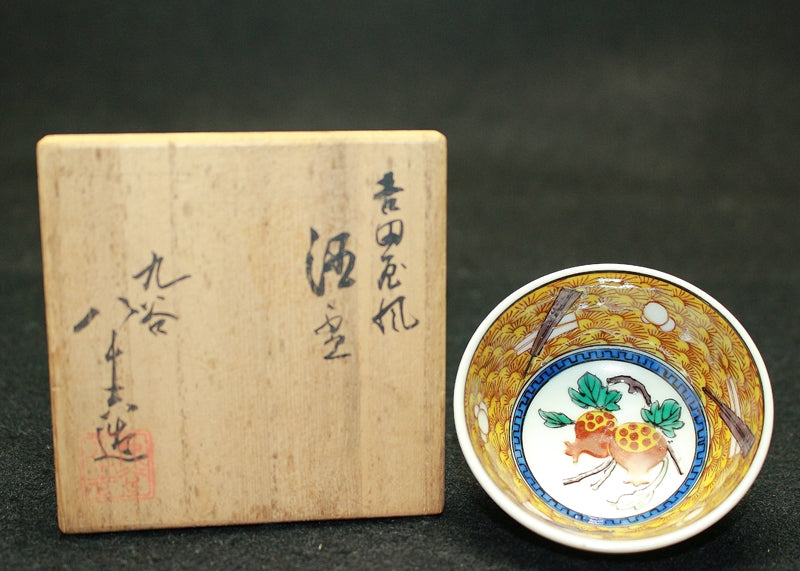 吉田屋風
酒盃
九谷
八十吉造